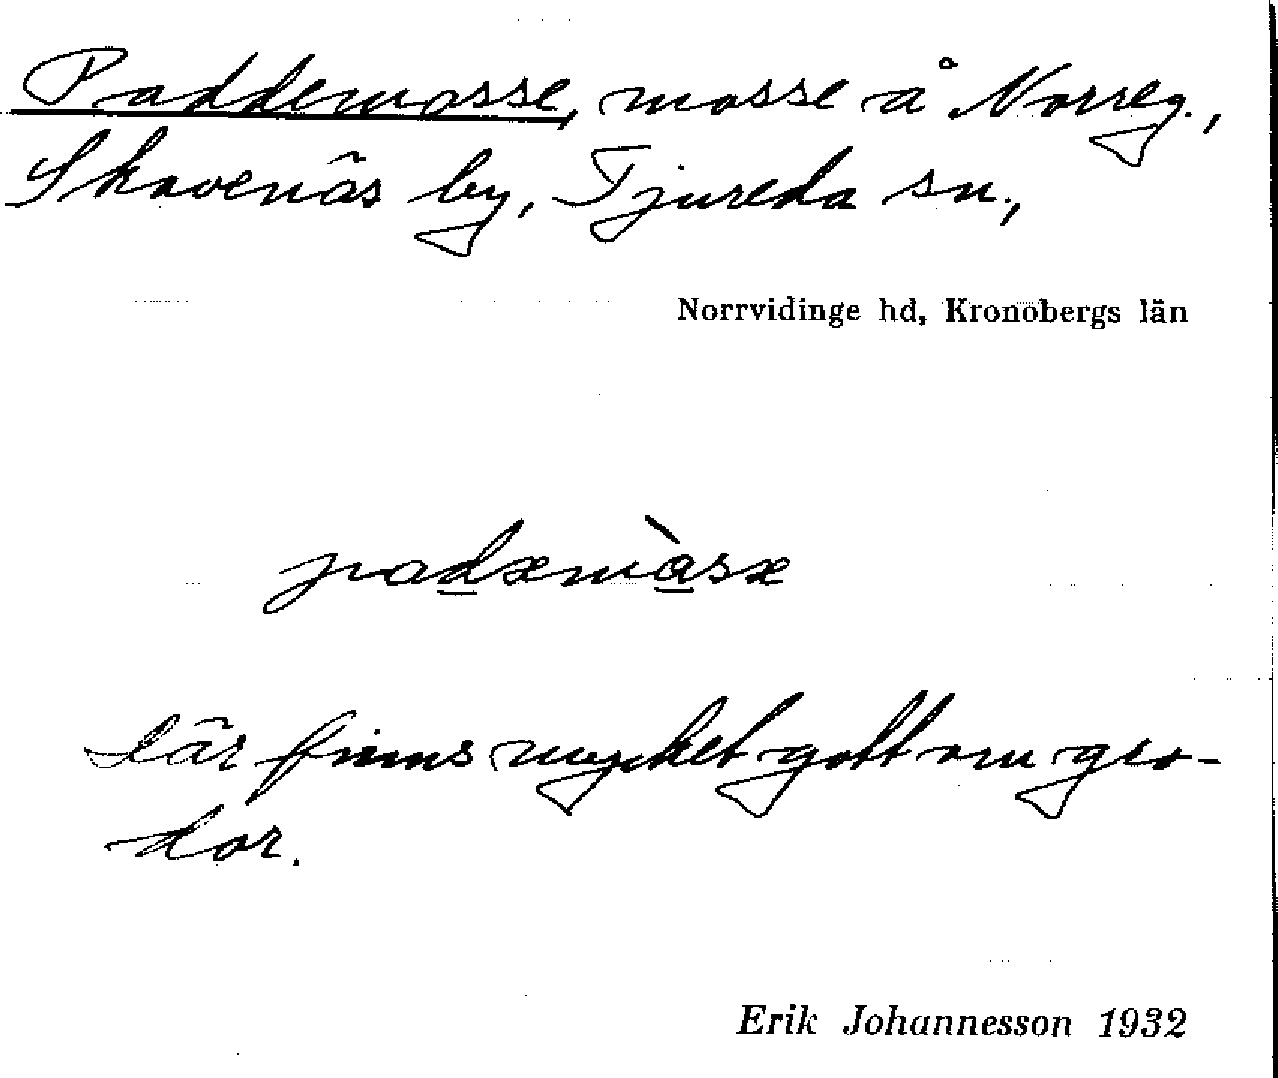 Paddemosse, mosse å Norreg.,
Skavenäs by, Tjureda sn.,
Norrvidinge hd, Kronobergs län
padæmàsæ
där finns mycket gott om gro-
dor.
Erik Johannesson 1932